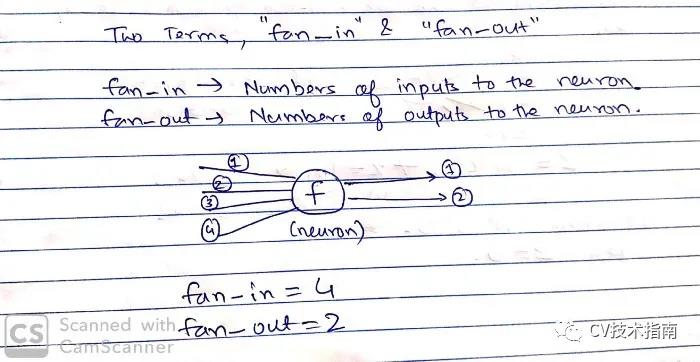 Two Terms, "fan_in" & "fan-out"
fan-in → Numbers of inputs to the neuron.
fan-out → Numbers of outputs to the neuron.
① ①
② ②
③ f
④
(neuron)
fan-in = 4
fan-out = 2
CS Scanned with CamScanner
CV技术指南